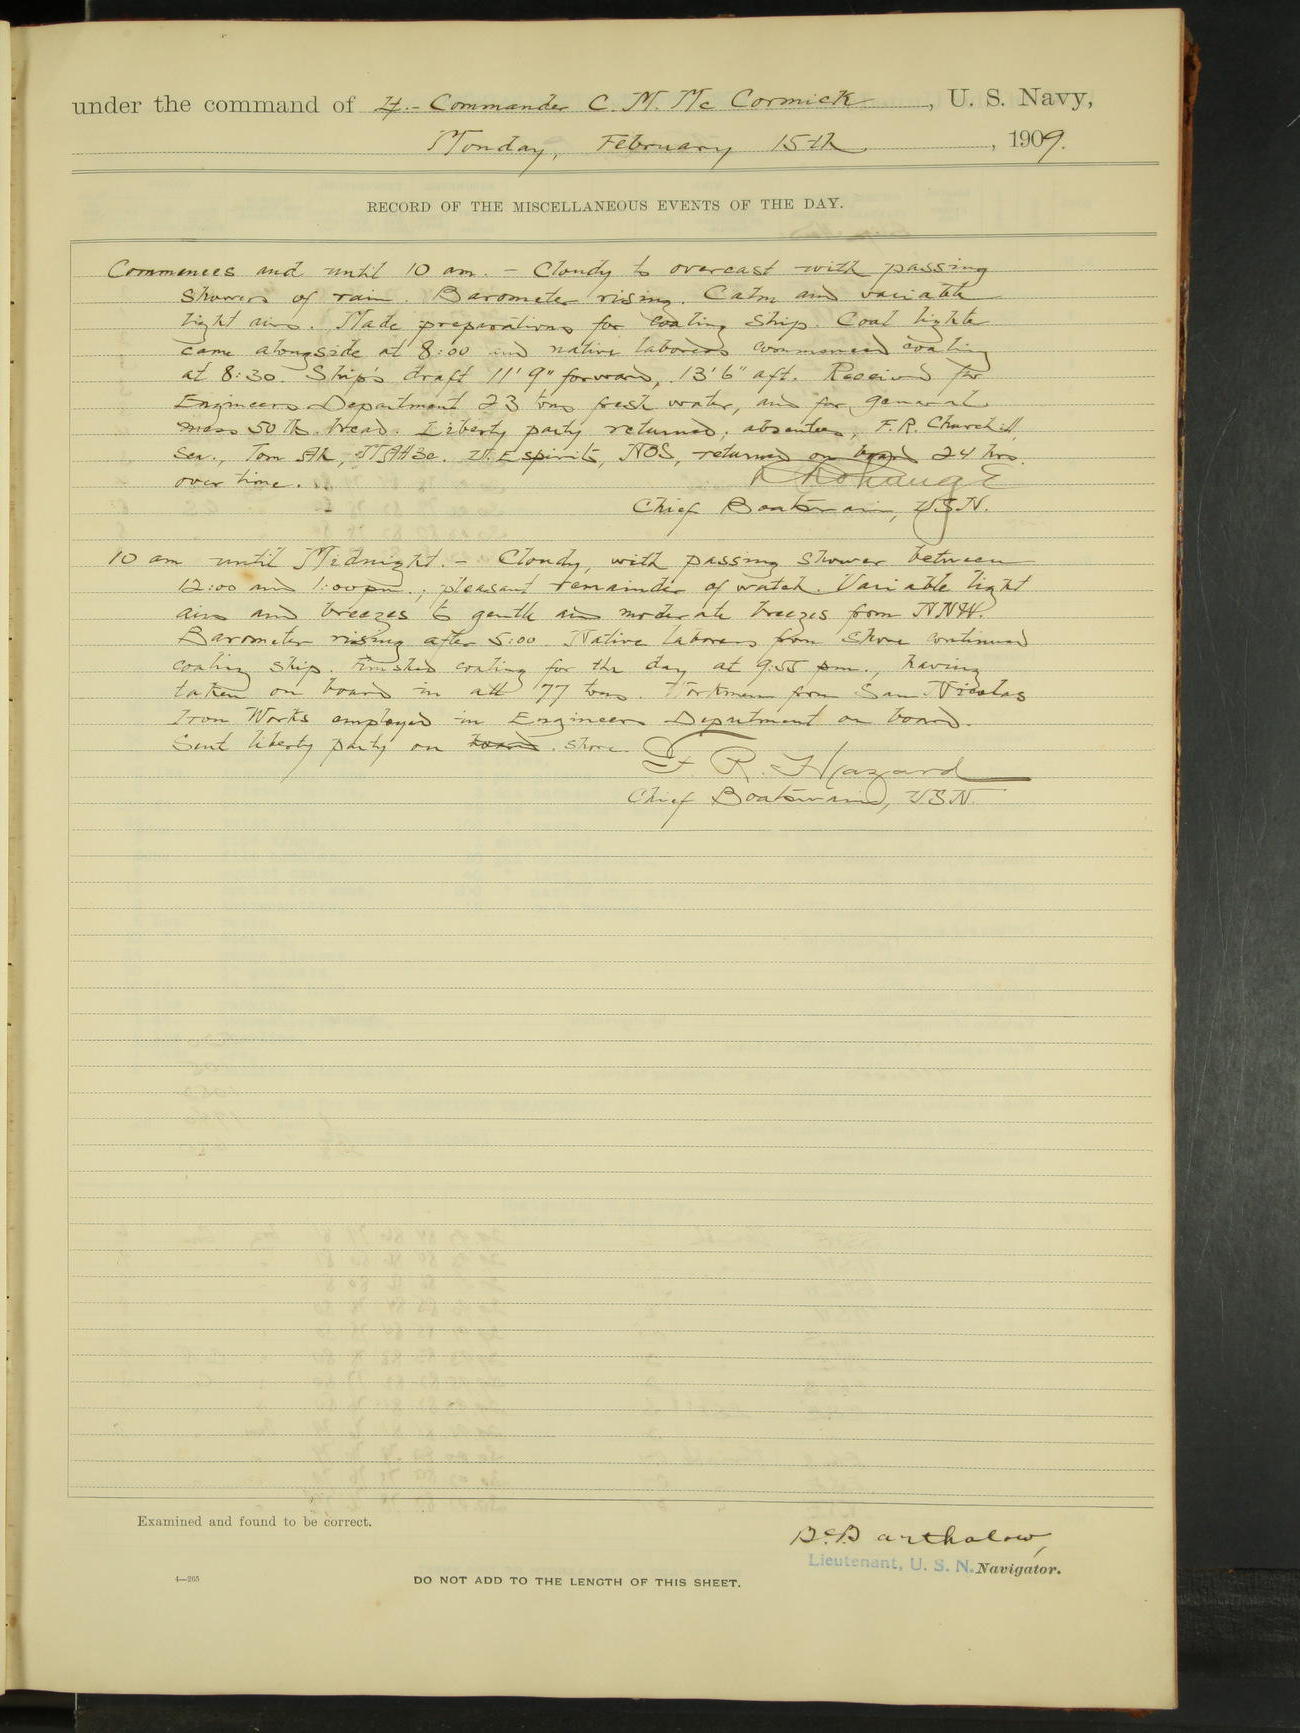 under the command of Lt.- Commander C. M. Mc Cormick, U. S. Navy,
Monday, February 15th, 1909.
RECORD OF THE MISCELLANEOUS EVENTS OF THE DAY.
Commences and until 10 am. - Cloudy to overcast with passing
showers of rain. Barometer rising. Calm and variable
light airs. Made preparations for coaling ship. Coal lighter
came alongside at 8:00 and native laborers commenced coaling
at 8:30. Ship's draft 11' 9" forward, 13' 6" aft. Received for
Engineers Department 23 tons fresh water, and for general
mess 50 lb. bread. Liberty party returned; absentees, F. R. Churchill,
Sea., Tom Ah, Espirito, returned on board 24 hrs.
over time.
Chief Boatswain, USN.
10 am until Midnight. - Cloudy, with passing shower between
12:00 and 1:00 pm.; pleasant remainder of watch. Variable light
airs and breezes to gentle and moderate breezes from NNW.
Barometer rising after 5:00. Native laborers from shore continued
coaling ship. Finished coaling for the day at 9:55 pm., having
taken on board in all 77 tons. Workmen from San Nicolas
Iron Works employed in Engineers Department on board.
Sent liberty party on board shore.
F. R. Hazard
Chief Boatswain, USN.
Examined and found to be correct.
Barthalow,
Lieutenant, U. S. N. Navigator.
4—265
DO NOT ADD TO THE LENGTH OF THIS SHEET.